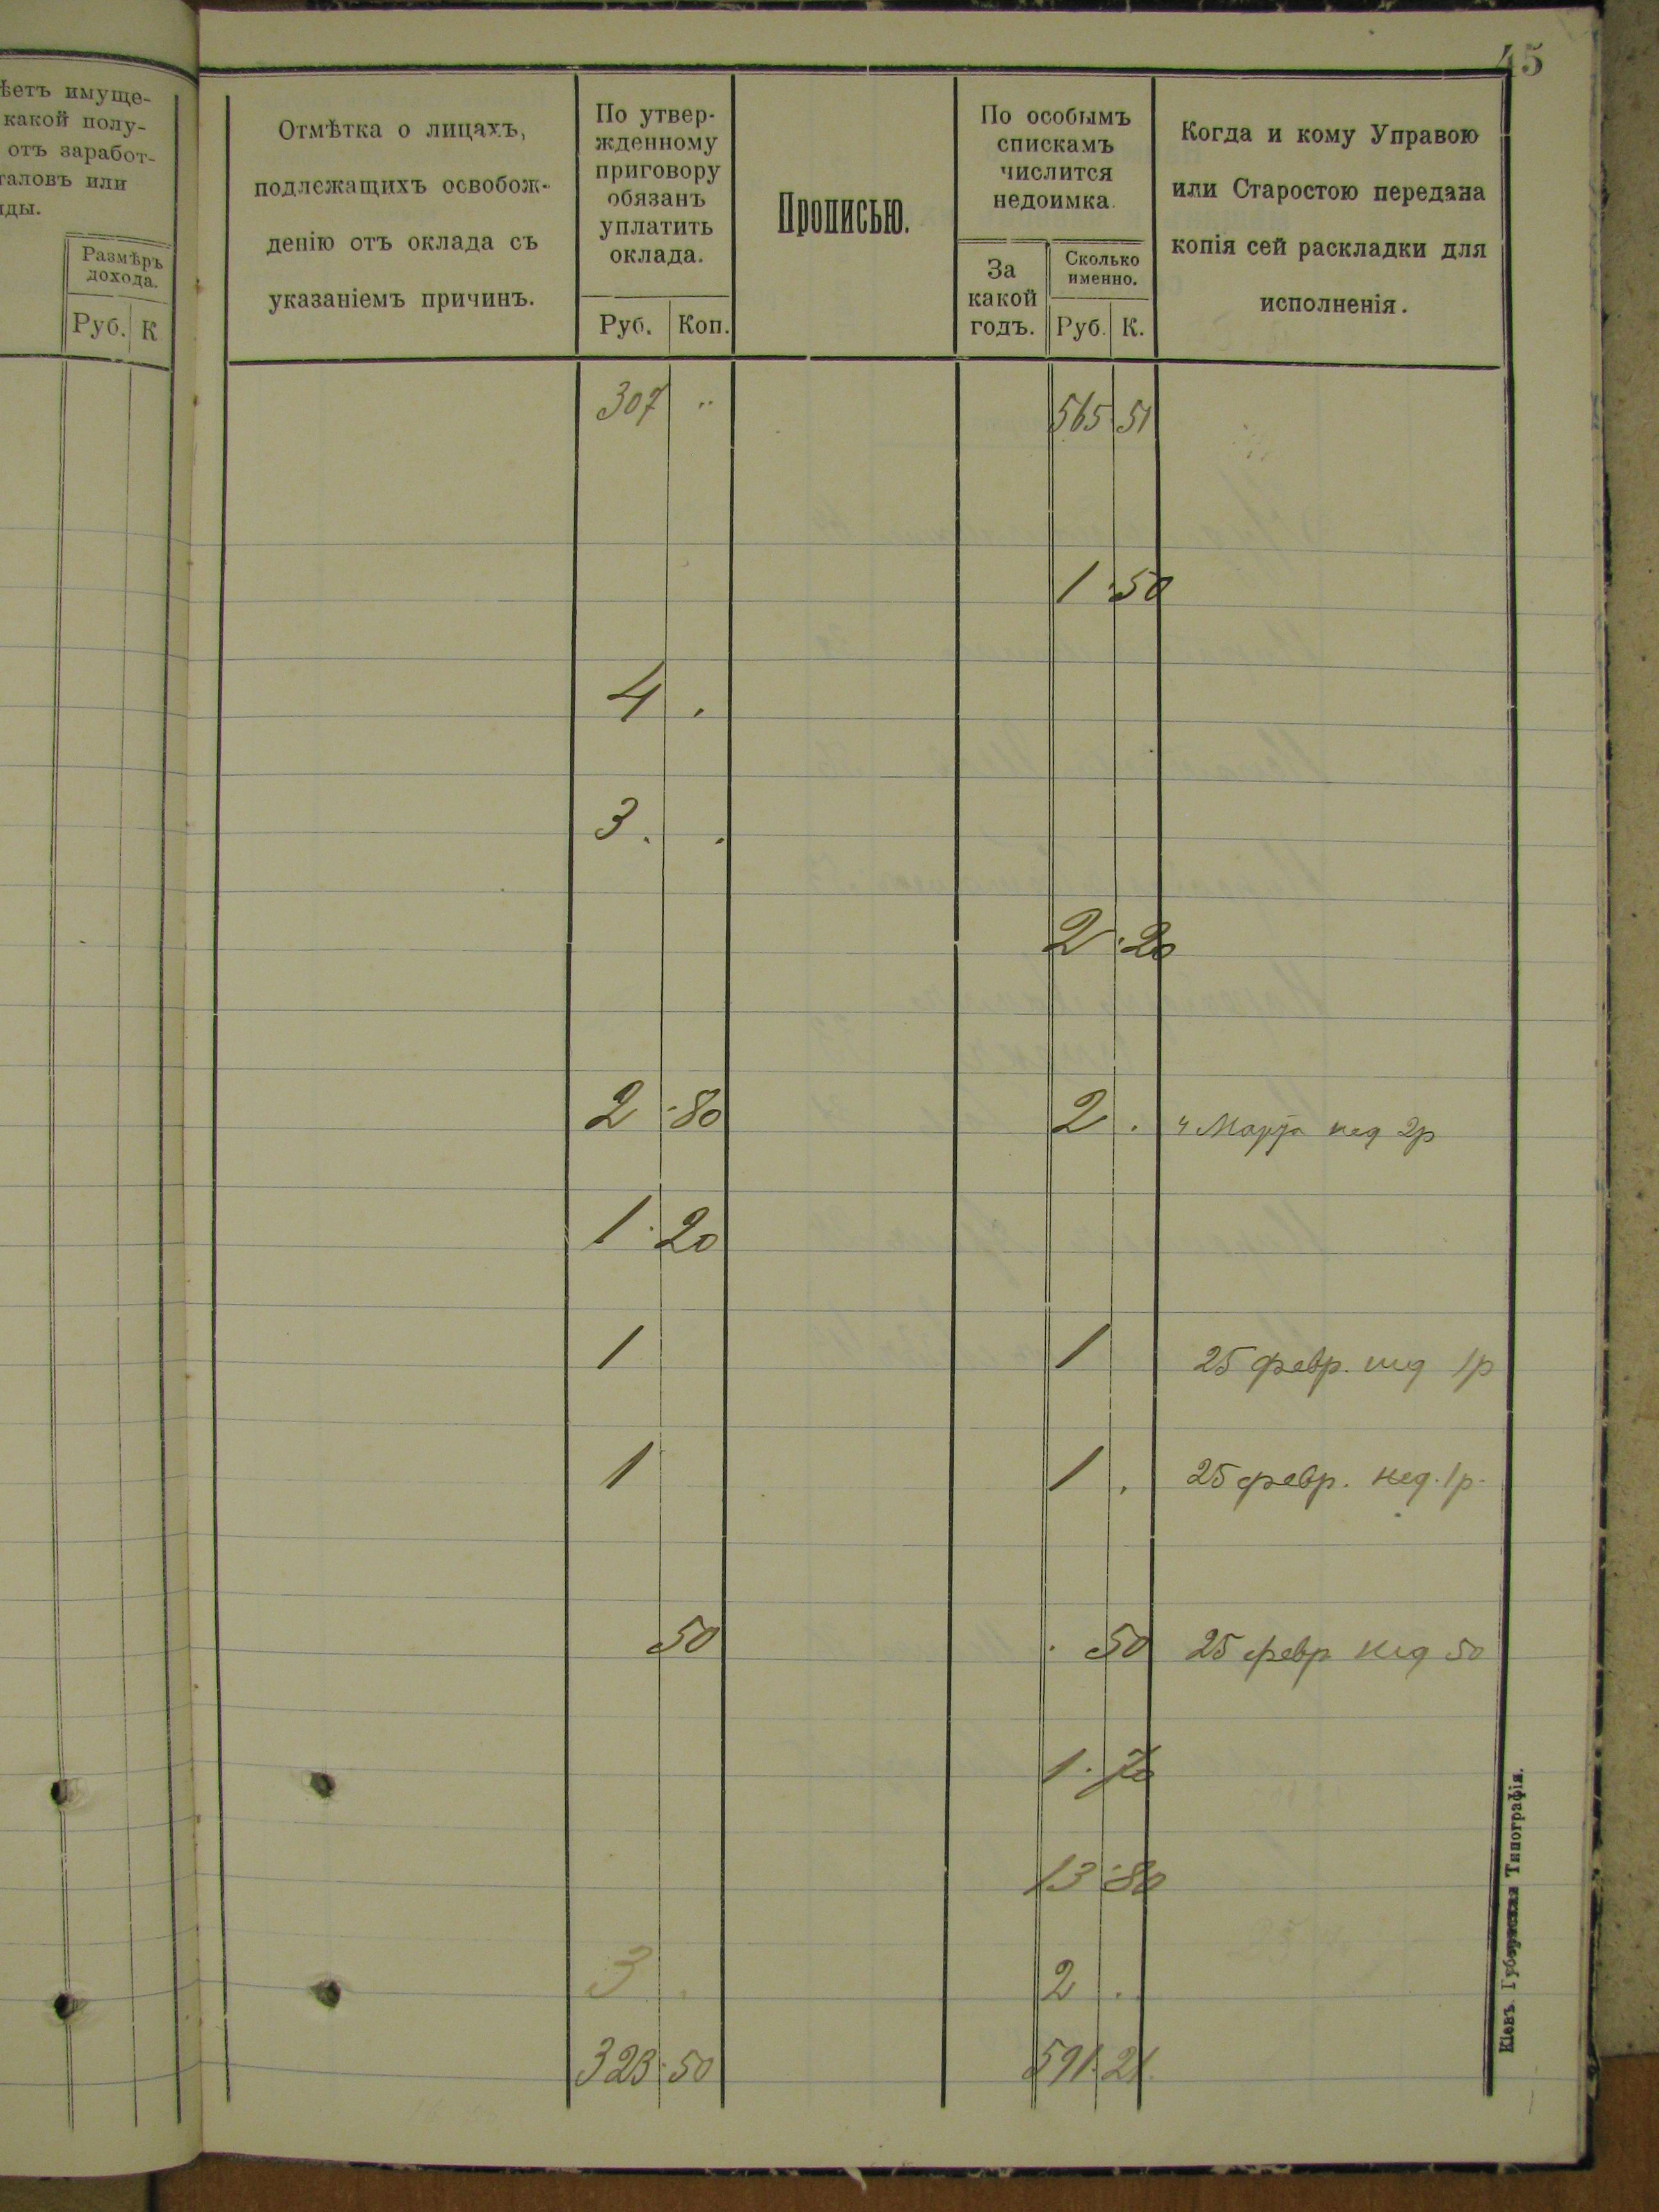 45
ѣетъ имуще-
какой полу-
отъ заработ-
таловъ или
ды.
Размѣръ
дохода.
Руб. К
Отмѣтка о лицахъ,
подлежащихъ освобож-
денію отъ оклада съ
указаніемъ причинъ.
По утвер-
жденному
приговору
обязанъ
уплатить
оклада.
Руб. Коп.
Прописью.
По особымъ
спискамъ
числится
недоимка.
За
какой
годъ.
Сколько
именно.
Руб. К.
Когда и кому Управою
или Старостою передана
копія сей раскладки для
исполненія.
307 " 565 51
1 50
4 .
3 . .
2 20
2 80 2 . 4 Марта нед 2р
1 20
1 1 25 февр. нед 1р
1 1 . 25 февр. нед. 1р.
50 . 50 25 февр нед 50
1 70
13 80
3 . 2 .
323 50 591 21
Кіевъ. Губернская Типографія.